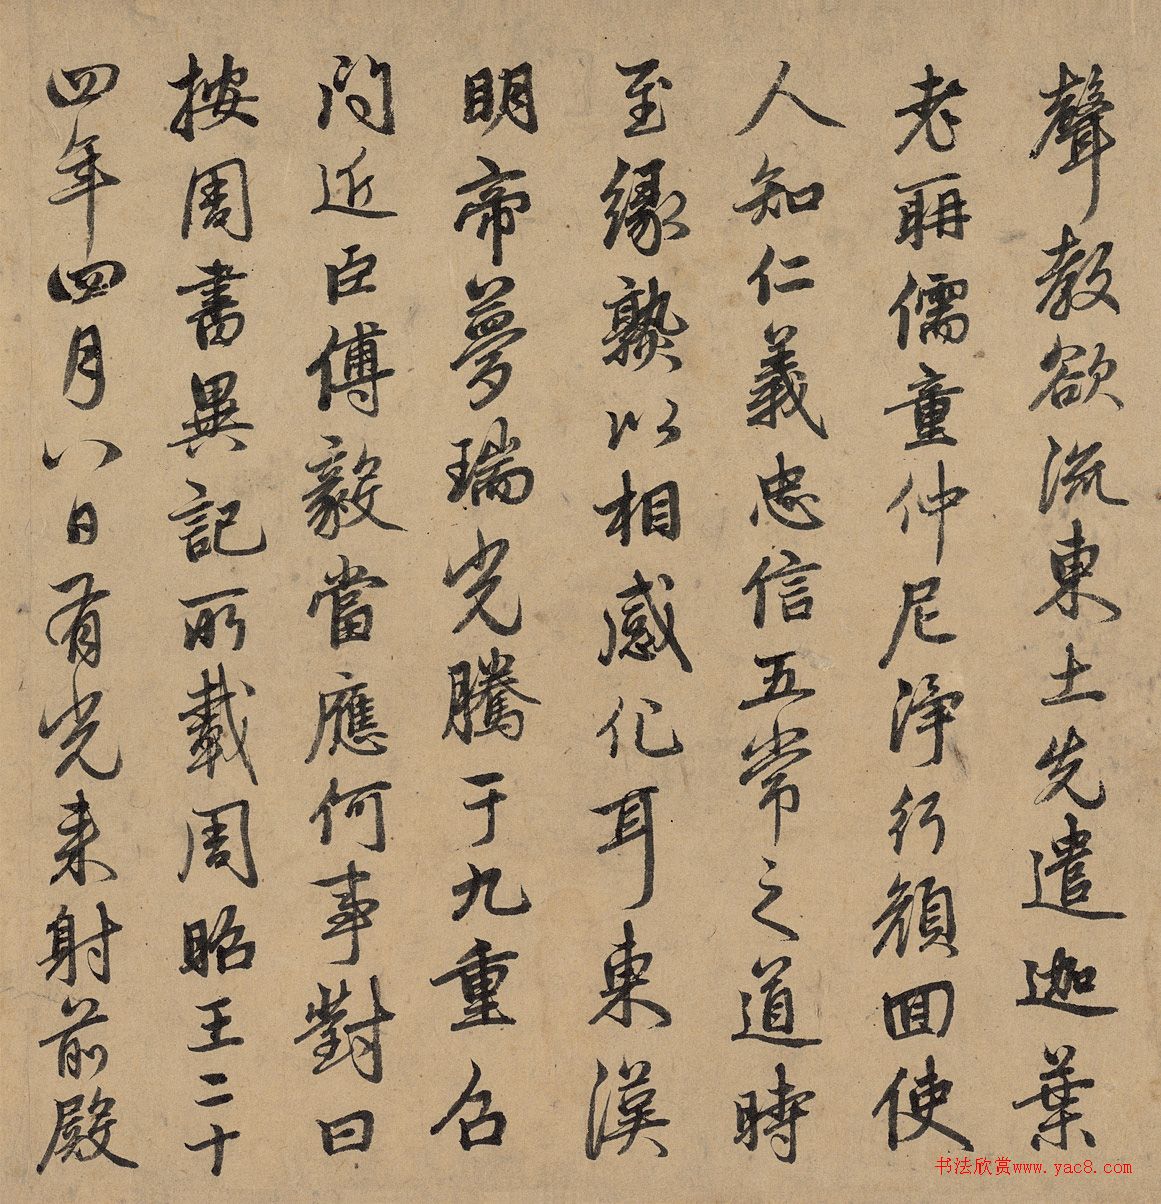 聲教欲流東土先遣迦葉
老聃儒童仲尼淨行顏回使
人知仁義忠信五常之道時
至緣熟以相感化耳東漢
明帝夢瑞光騰于九重召
問近臣傅毅當應何事對曰
按周書異記所載周昭王二十
四年四月八日有光來射前殿
书法欣赏www.yac8.com